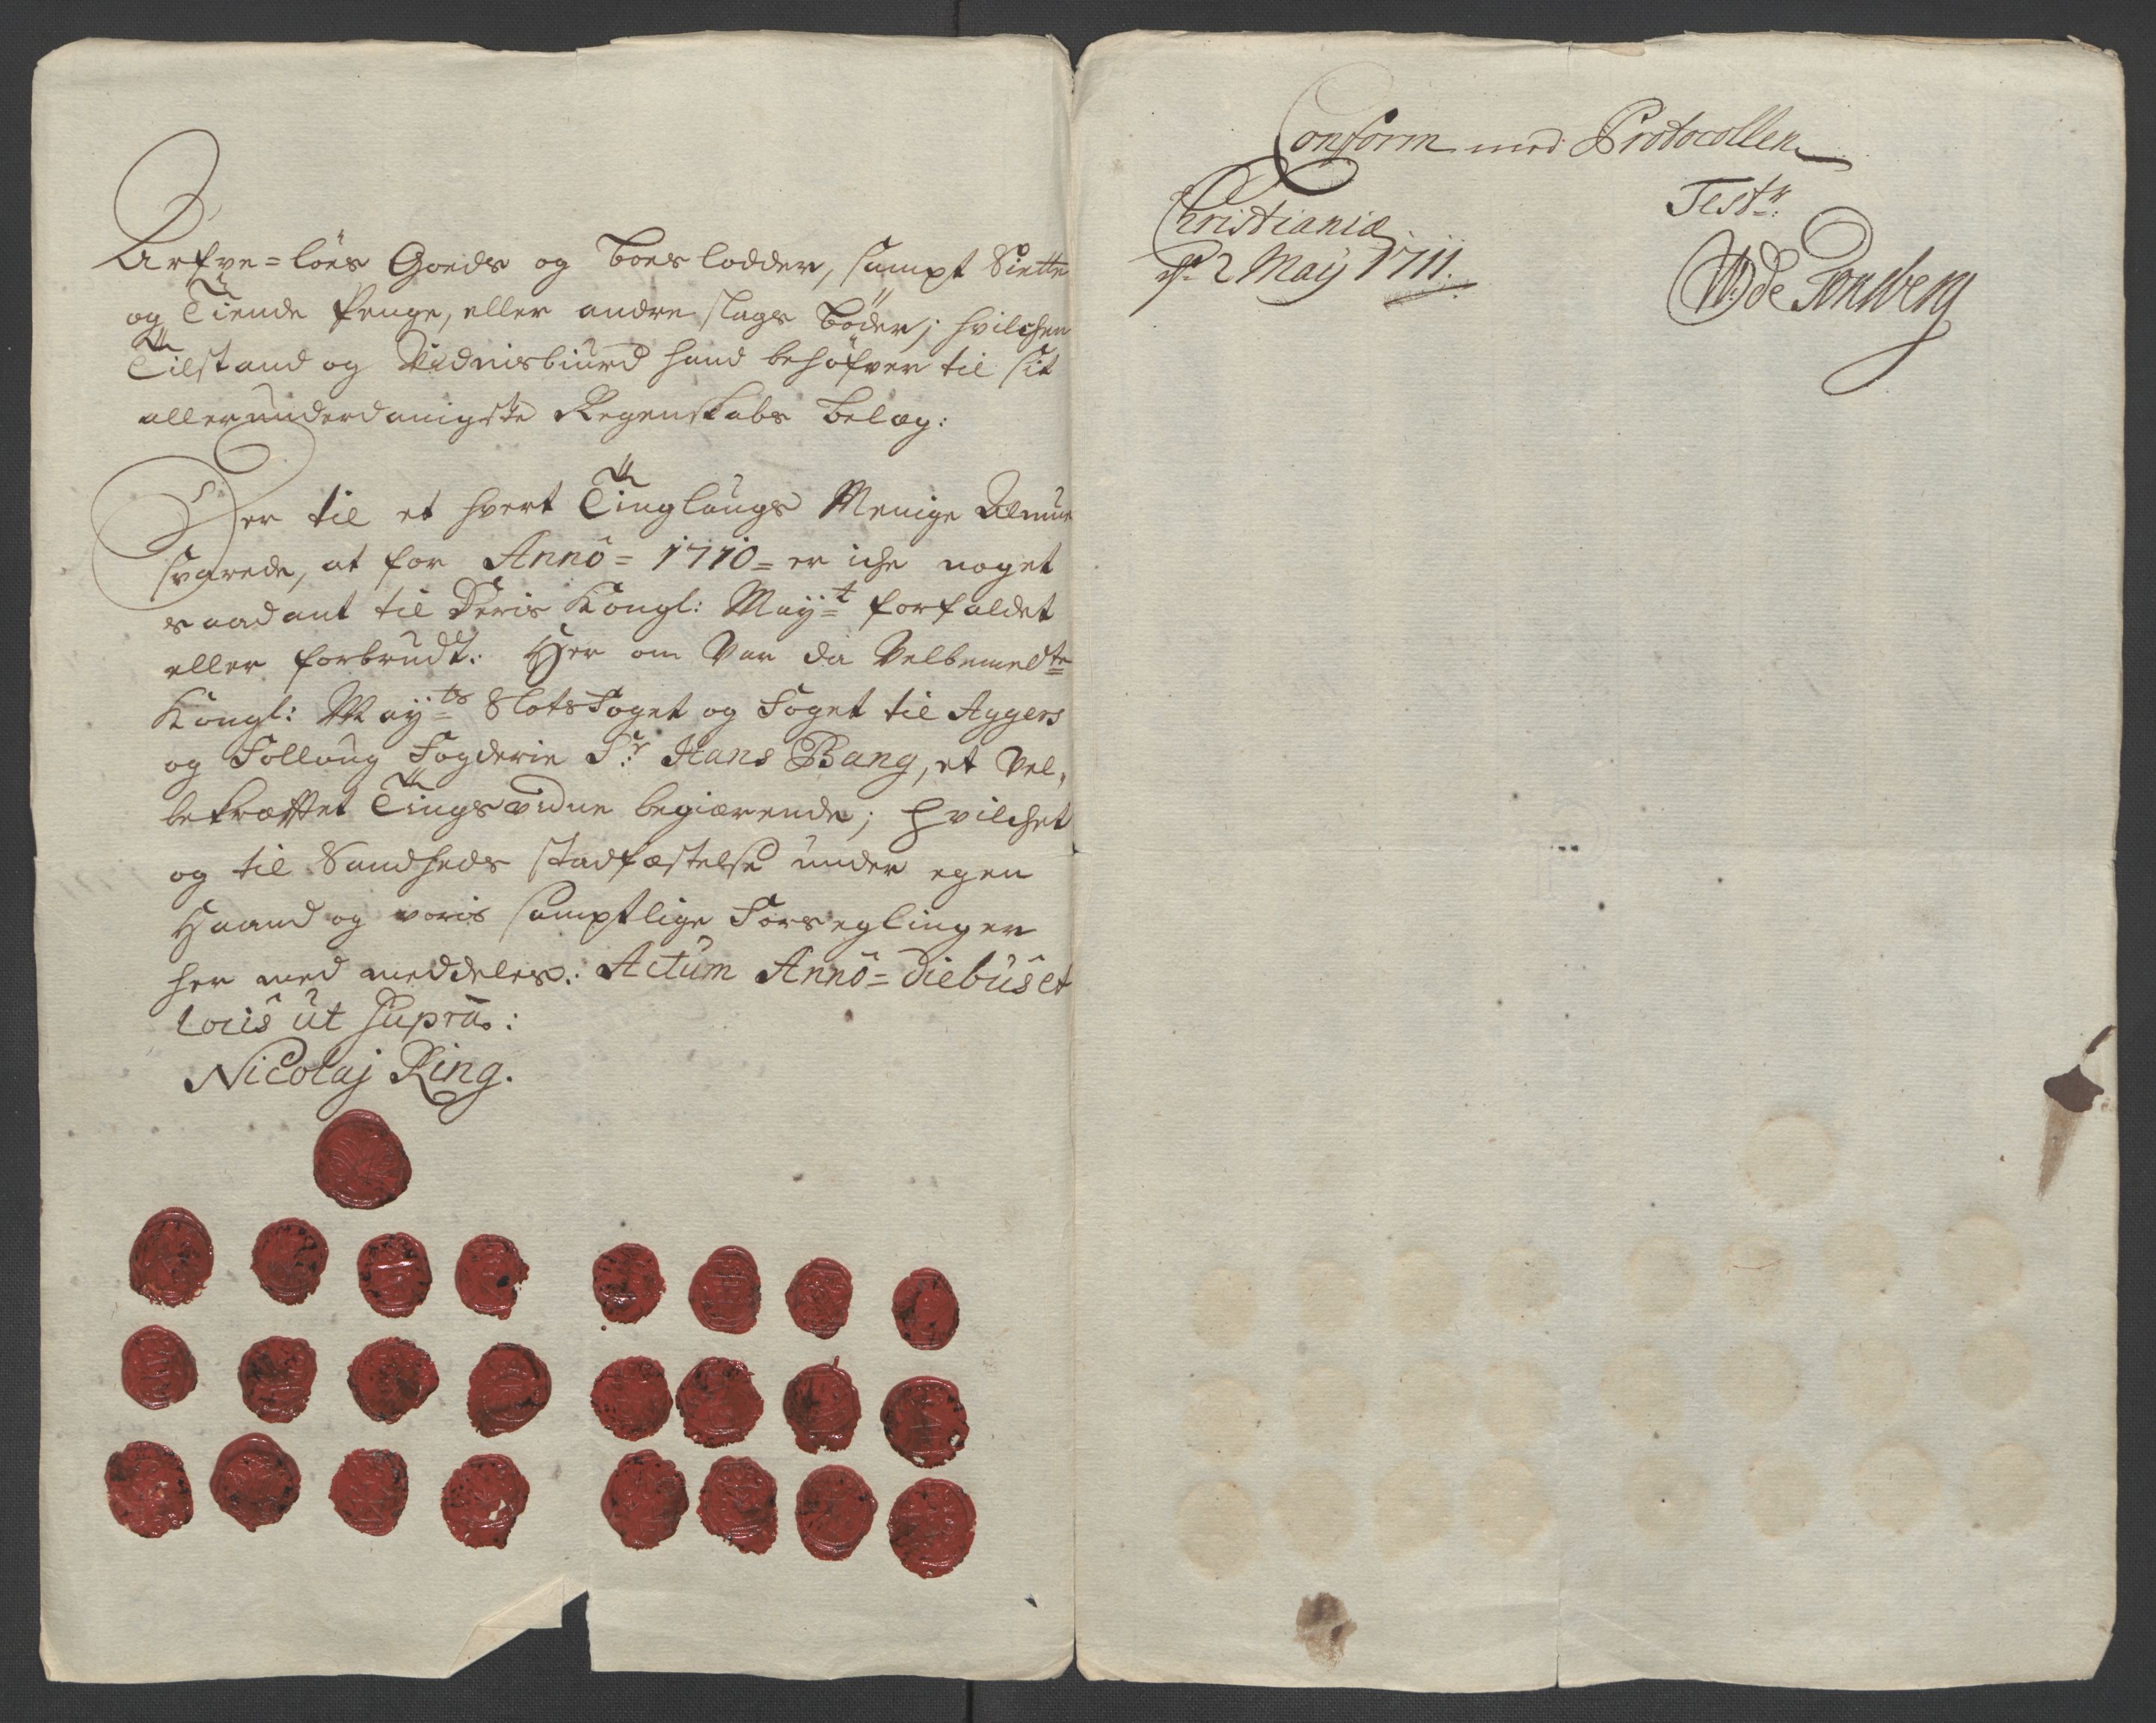 Arfve=løes Goeds og Boeslodder, sampt Siette
og Tiende Penge, eller andre slags Bøder; hvilchen
Tilstand og Vidnisbiurd hand behøfver til sit
allerunderdanigste Regenskabs Belæg:
Der til et hvert Tinglaugs Menige Almue
svarede, at for Anno = 1710 = er iche noget
saadant til Deris Kongl: May:t forfaldet
eller forbrudt: Her om Var da Velbemelte
Kongl: May:ts SlotsFoget og Foget til Aggers
og Follaug Fogderie Sr: Hans Bang, et Vel,
bekræftet Tingsvidne begiærende; hvilchet
og til Sandheds stadfæstelse under egen
Haand og voris samptlige Forseglinger
her med meddeles: Actum Anno = diebus et
locis ut supra:
Nicolaj Ring.
Conform med Protocollen
Christiania
d. 2 Maij 1711.
Test:
WdeTonsberg